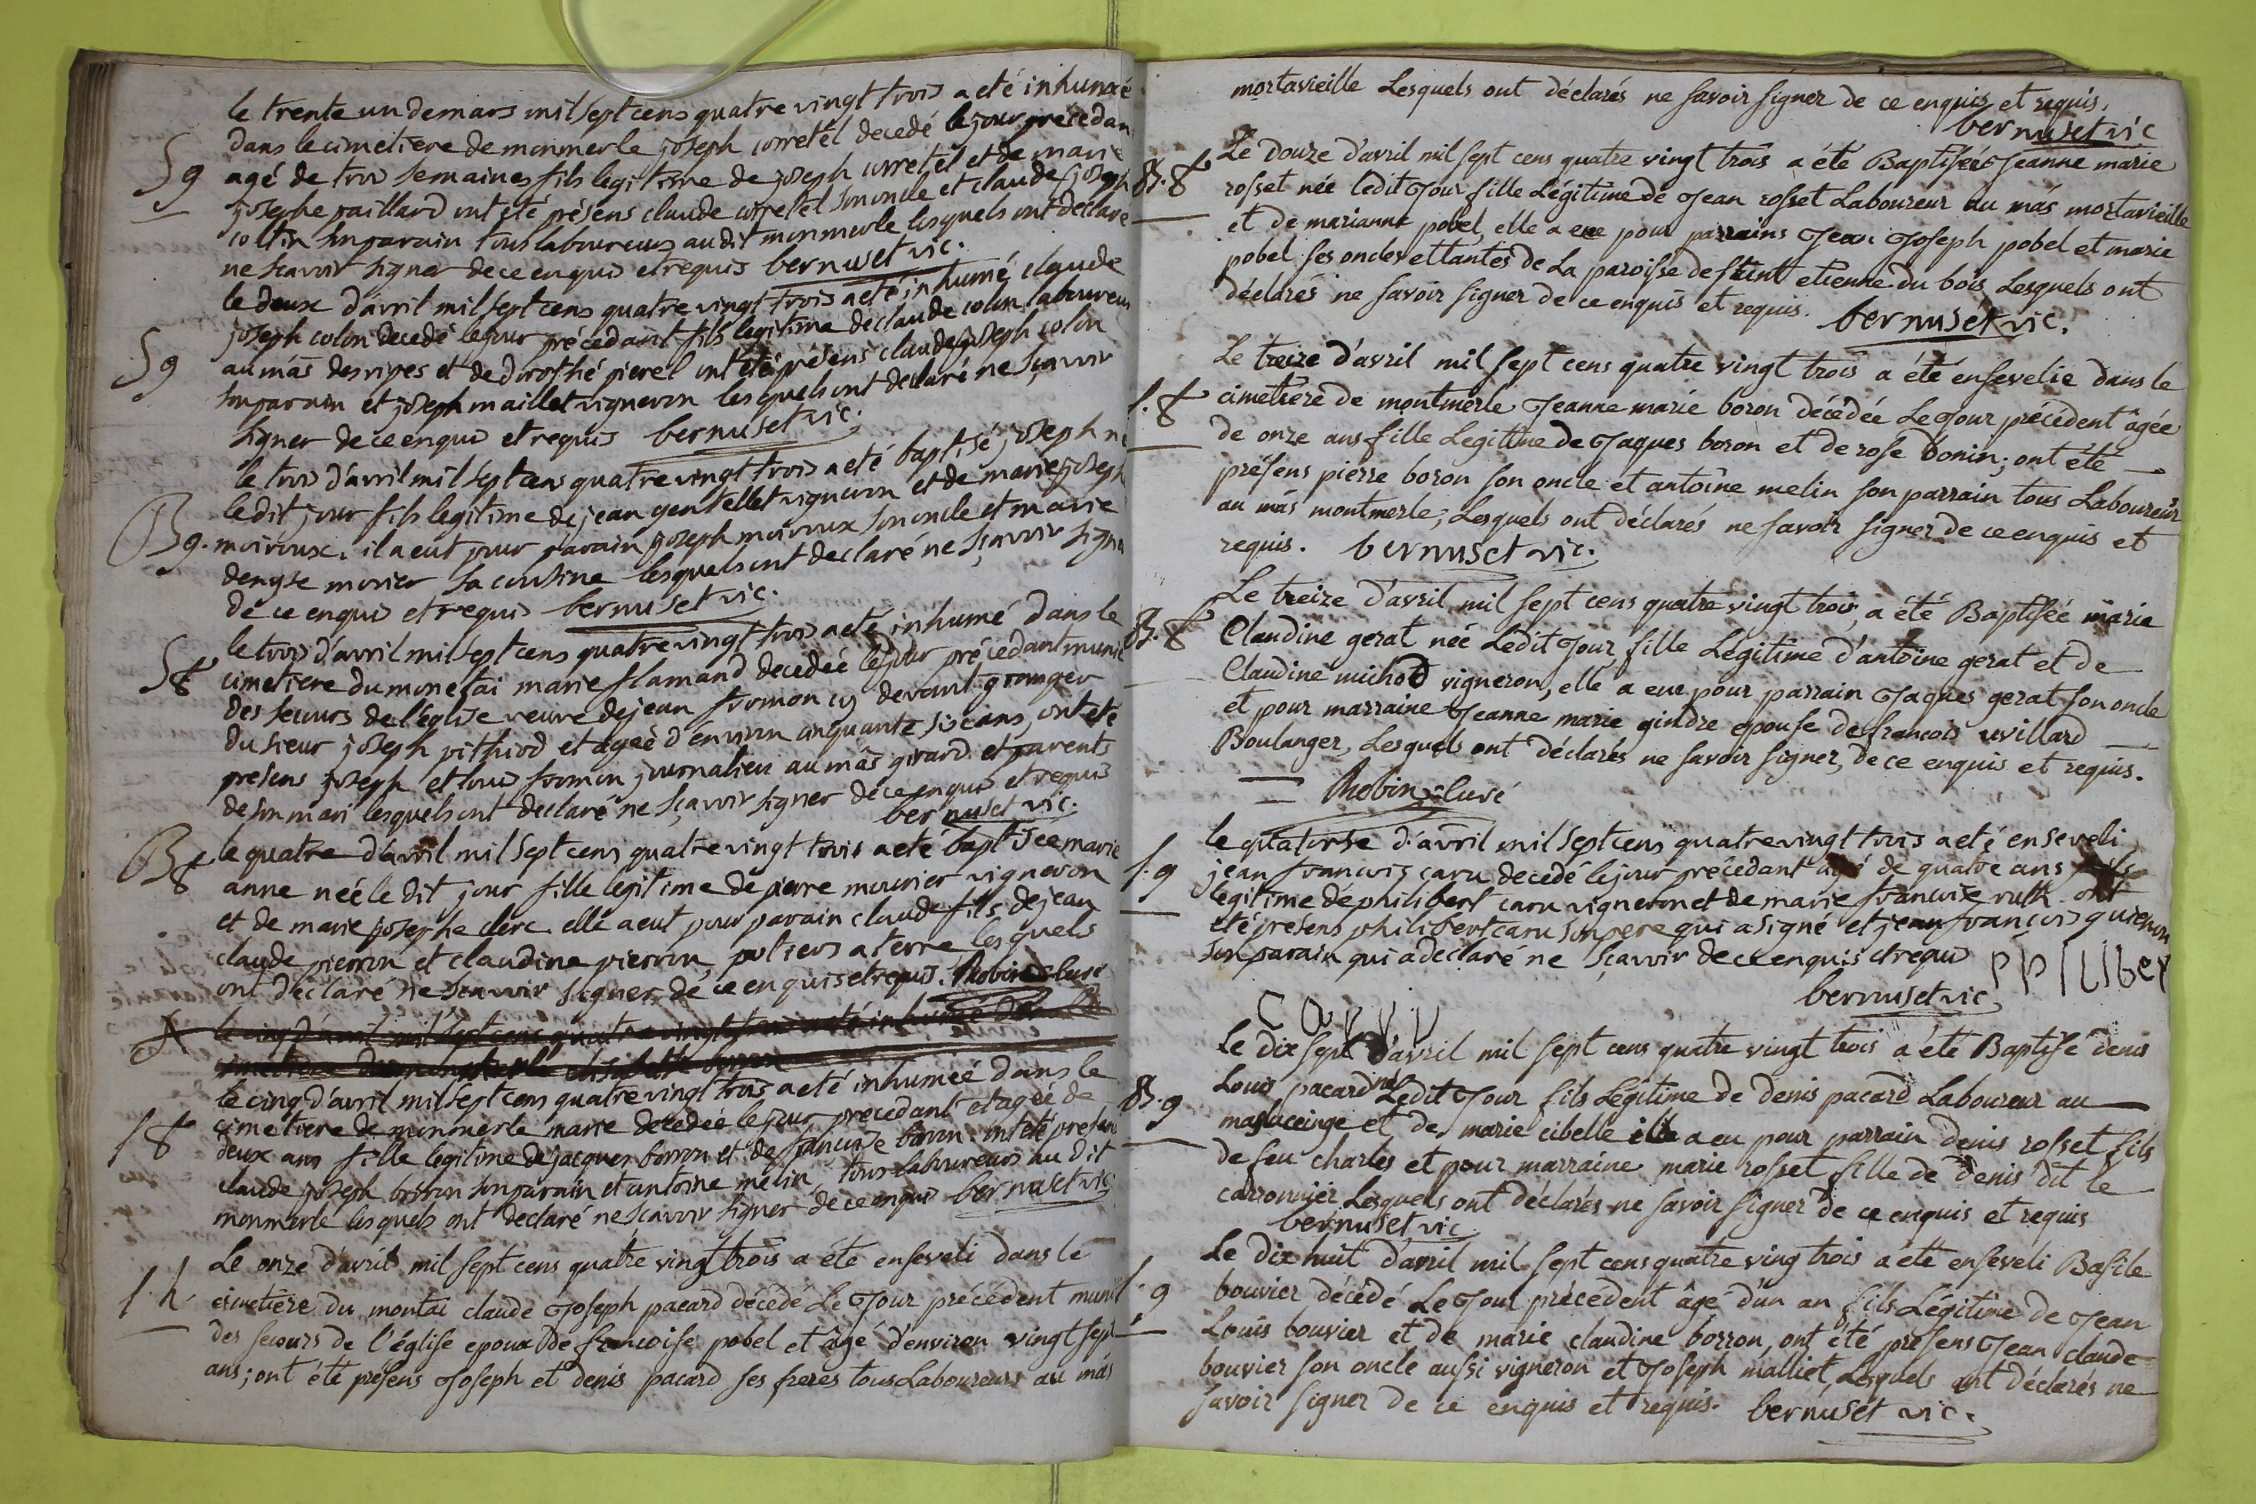 le trente un de mars mil sept cens quatre vingt trois a eté inhumé
dans le cimetiere de monmerle joseph corretel decedé le jour precedan
S g agé de trois semaines fils legitime de joseph corretel et de marie
josephe paillard ont été présens claude corretel son oncle et claude joseph
collin son parain tous laboureurs au dit monmerle lesquels ont declaré
ne scavoir signer de ce enquis et requis bernuset vic.
le deux d'avril mil sept cens quatre vingt trois a eté inhumé claude
joseph colon decedé le jour précedant fils legitime de claude colon laboureur
S g au mâs des ripes et de dorothé pierel ont été présens claude joseph colon
son parain et joseph maillet vigneron lesquels ont declaré ne sçavoir
signer de ce enquis et requis bernuset vic.
le trois d'avril mil sept cens quatre vingt trois a eté baptisé joseph né
le dit jour fils legitime de jean gentellet vigneron et de marie joseph
B g. moiroux. il a eut pour parain joseph moiroux son oncle et marie
denyse morier sa cousine lesquels ont declaré ne sçavoir signer
de ce enquis et requis bernuset vic.
le trois d'avril mil sept cens quatre vingt trois a eté inhumé dans le
S f cimetiere du montai marie flamand decedée le jour précedant munie
des secours de l'église veuve de jean fromon cy devant granger
du sieur joseph pithiod et ageé d'environ cinquante six ans, ont eté
présens joseph et louis fromon journaliers au mâs girard et parents
de son mari lesquels ont declaré ne sçavoir signer de ce enquis et requis
bernuset vic.
B f le quatre d'avril mil sept cens quatre vingt trois a eté baptisée marie
anne neé le dit jour fille legitime de pierre mourier vigneron
et de marie josephe clerc. elle a eut pour parain claude fils de jean
claude pierron et claudine pierron, potiers a terre, lesquels
ont declaré ne scavoir signer de ce enquis et requis. Robin curé
le cinq d'avril mil sept cens quatre vingt trois a eté inhumée dans le
le cinq d'avril mil sept cens quatre vingt trois a eté inhumeé dans le
f f cimetiere de monmerle marie decedée le jour precedant et ageé de
deux ans fille legitime de jacques borron et de francoise bonin. ont été presens
claude joseph borron son parain et antoine melin, tous laboureurs au dit
monmerle lesquels ont declaré ne scavoir signer de ce enquis bernuset vic
Le onze d'avril mil sept cens quatre vingt trois a été enseveli dans le
f. h. cimetiere du montai claude Joseph pacard décédé Le Jour précédent muni
des secours de l'église epoux de francoise pobel et âgé d'environ vingt sept
ans; ont été présens Joseph et denis pacard ses freres tous Laboureurs au mâs
mortavieille Lesquels ont déclarés ne savoir signer de ce enquis et requis.
bernuset vic
Le douze d'avril mil sept cens quatre vingt trois a été Baptisée Jeanne marie
B. f rosset née ledit Jour fille Légitime de Jean rosset Laboureur au mâs mortavieille
et de marianne pobel, elle a eue pour parrains Jean Joseph pobel et marie
pobel ses oncles et tantes de La paroisse de saint etienne du bois Lesquels ont
déclarés ne savoir signer de ce enquis et requis. bernuset vic.
Le treize d'avril mil sept cens quatre vingt trois a été ensevelie dans le
f. f cimetiere de montmerle Jeanne marie boron décédée Le Jour précédent âgée
de onze ans fille Legitime de Jaques boron et de rose bonin; ont été
présens pierre boron son oncle et antoîne melin son parrain tous Laboureur
au mâs montmerle, Lesquels ont déclarés ne savoir signer de ce enquis et
requis. bernuset vic.
Le treize d'avril mil sept cens quatre vingt trois, a été Baptisée marie
B. f Claudine gerat née Ledit Jour fille Légitime d'antoine gerat et de
Claudine michod vigneron, elle a eue pour parrain Jaques gerat son oncle
et pour marraine Jeanne marie gindre epouse de francois uvillard
Boulanger, Lesquels ont déclarés ne savoir signer, de ce enquis et requis.
Robin curé
le quatorse d'avril mil sept cens quatre vingt trois a eté enseveli
f. g jean francois caru decedé le jour précédant agé de quatre ans fils
legitime de philibert caru vigneron et de marie francoise ruth. ont
été présens philibert caru son pere qui a signé et jean françois guichon
son parain qui a declaré ne sçavoir de ce enquis et requis
bernuset vic
Le dix sept d'avril mil sept cens quatre vingt trois a été Baptisé denis
B. g Louis pacard né Ledit Jour fils Légitime de denis pacard Laboureur au
mas luceinge et de marie cibelle il a eu pour parrain denis rosset fils
de feu charles et pour marraine marie rosset fille de denis dit le
carronnier Lesquels ont déclarés ne savoir signer de ce enquis et requis
bernuset vic
Le dix huit d'avril mil sept cens quatre ving trois a été enseveli Basile
f. g bouvier décédé Le Jour précédent âgé d'un an fils Légitime de Jean
Louis bouvier et de marie claudine borron, ont été présens Jean claude
bouvier son oncle aussi vigneron et Joseph malliet, Lesquels ont déclarés ne
savoir signer de ce enquis et requis. bernuset vic.